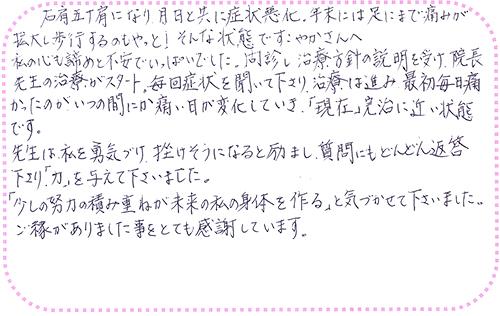 右肩五十肩になり月日と共に症状悪化。年末には足にまで痛みが
拡大し歩行するのもやっと!そんな状態ですこやかさんへ
私の心も諦めと不安でいっぱいでした。問診し治療方針の説明を受け、院長
先生の治療がスタート。毎回症状を聞いて下さり治療は進み、最初毎日痛
かったのがいつの間にか痛い日が変化していき、「現在」完治に近い状態
です。
先生は私を勇気づけ、挫けそうになると励まし、質問にもどんどん返答
下さり「力」を与えて下さいました。
「少しの努力の積み重ねが未来の私の身体を作る」と気づかせて下さいました。
ご縁がありました事をとても感謝しています。